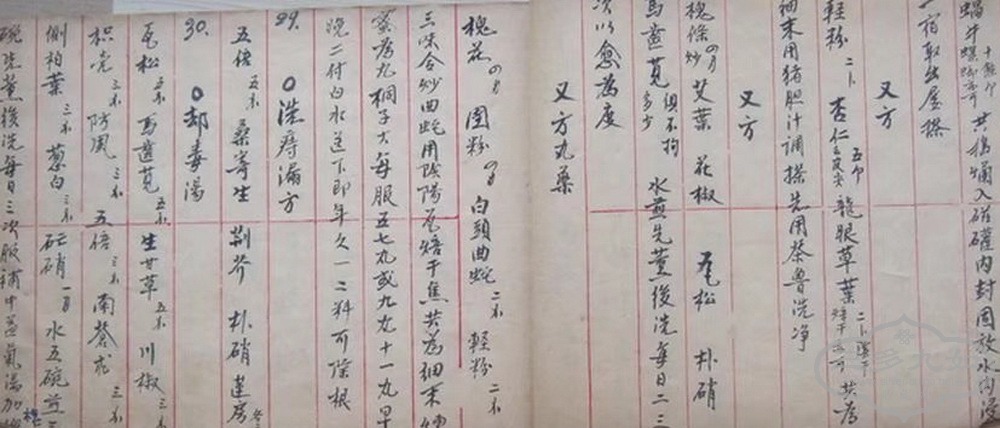 十餘个
蝸牛螺螄亦可 共搗爛入磁礶内封固放水内浸
一宿取出屋搽
又方
輕粉 二卜 杏仁 五个 去皮尖 龍眼草葉 二卜 共為
細末用猪胆汁調搽先用茶鲁洗净
又方
槐條 炒 艾葉 花椒 瓦松 朴硝
馬齒莧 俱不拘多少 水煎先薰後洗每日二三
次以愈為度
又方丸藥
槐花 园粉 白頭曲蛇 二条 輕粉 二不
三味合炒曲蛇用陰陽瓦焙干焦共為細末
蜜為丸桐子大每服五七丸或九丸十一丸早
晚二付白水送下即年久一二料可除根
29. 洗痔漏方
五倍 五不 桑寄生 荆芥 朴硝 蓮房
30. 却毒湯
瓦松 五不 馬齒莧 五不 生甘草 五不 川椒 三不
枳壳 三不 防風 三不 五倍 三不 南蒼朮 三不
側柏葉 三不 葱白 三不 芒硝 一月 水五碗煎三
碗先薰後洗每日三次服補中益氣湯加